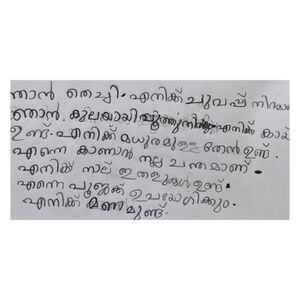 ഞാൻ തെച്ചി. എനിക്ക് ചുവപ്പ് നിറമാ
ഞാൻ. കുലയായി പൂത്തുനിൽ എനിക്ക് കായ്
ഉണ്ട്. എനിക്ക് മധുരമുള്ള തേൻ ഉണ്ട്.
എന്നെ കാണാൻ നല്ല ചന്തമാണ്.
എനിക്ക് നാല് ഇതളുകൾ ഉണ്ട്.
എന്നെ പൂജക്ക് ഉപയോഗിക്കും.
എനിക്ക് മണമുണ്ട്.